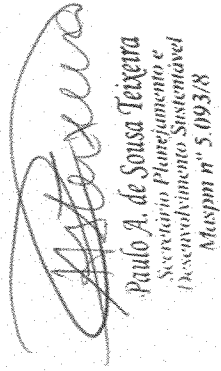 Paulo A. de Sousa Teixeira
Secretário Planejamento e
Desenvolvimento Sustentável
Maspm nº 5.093/8